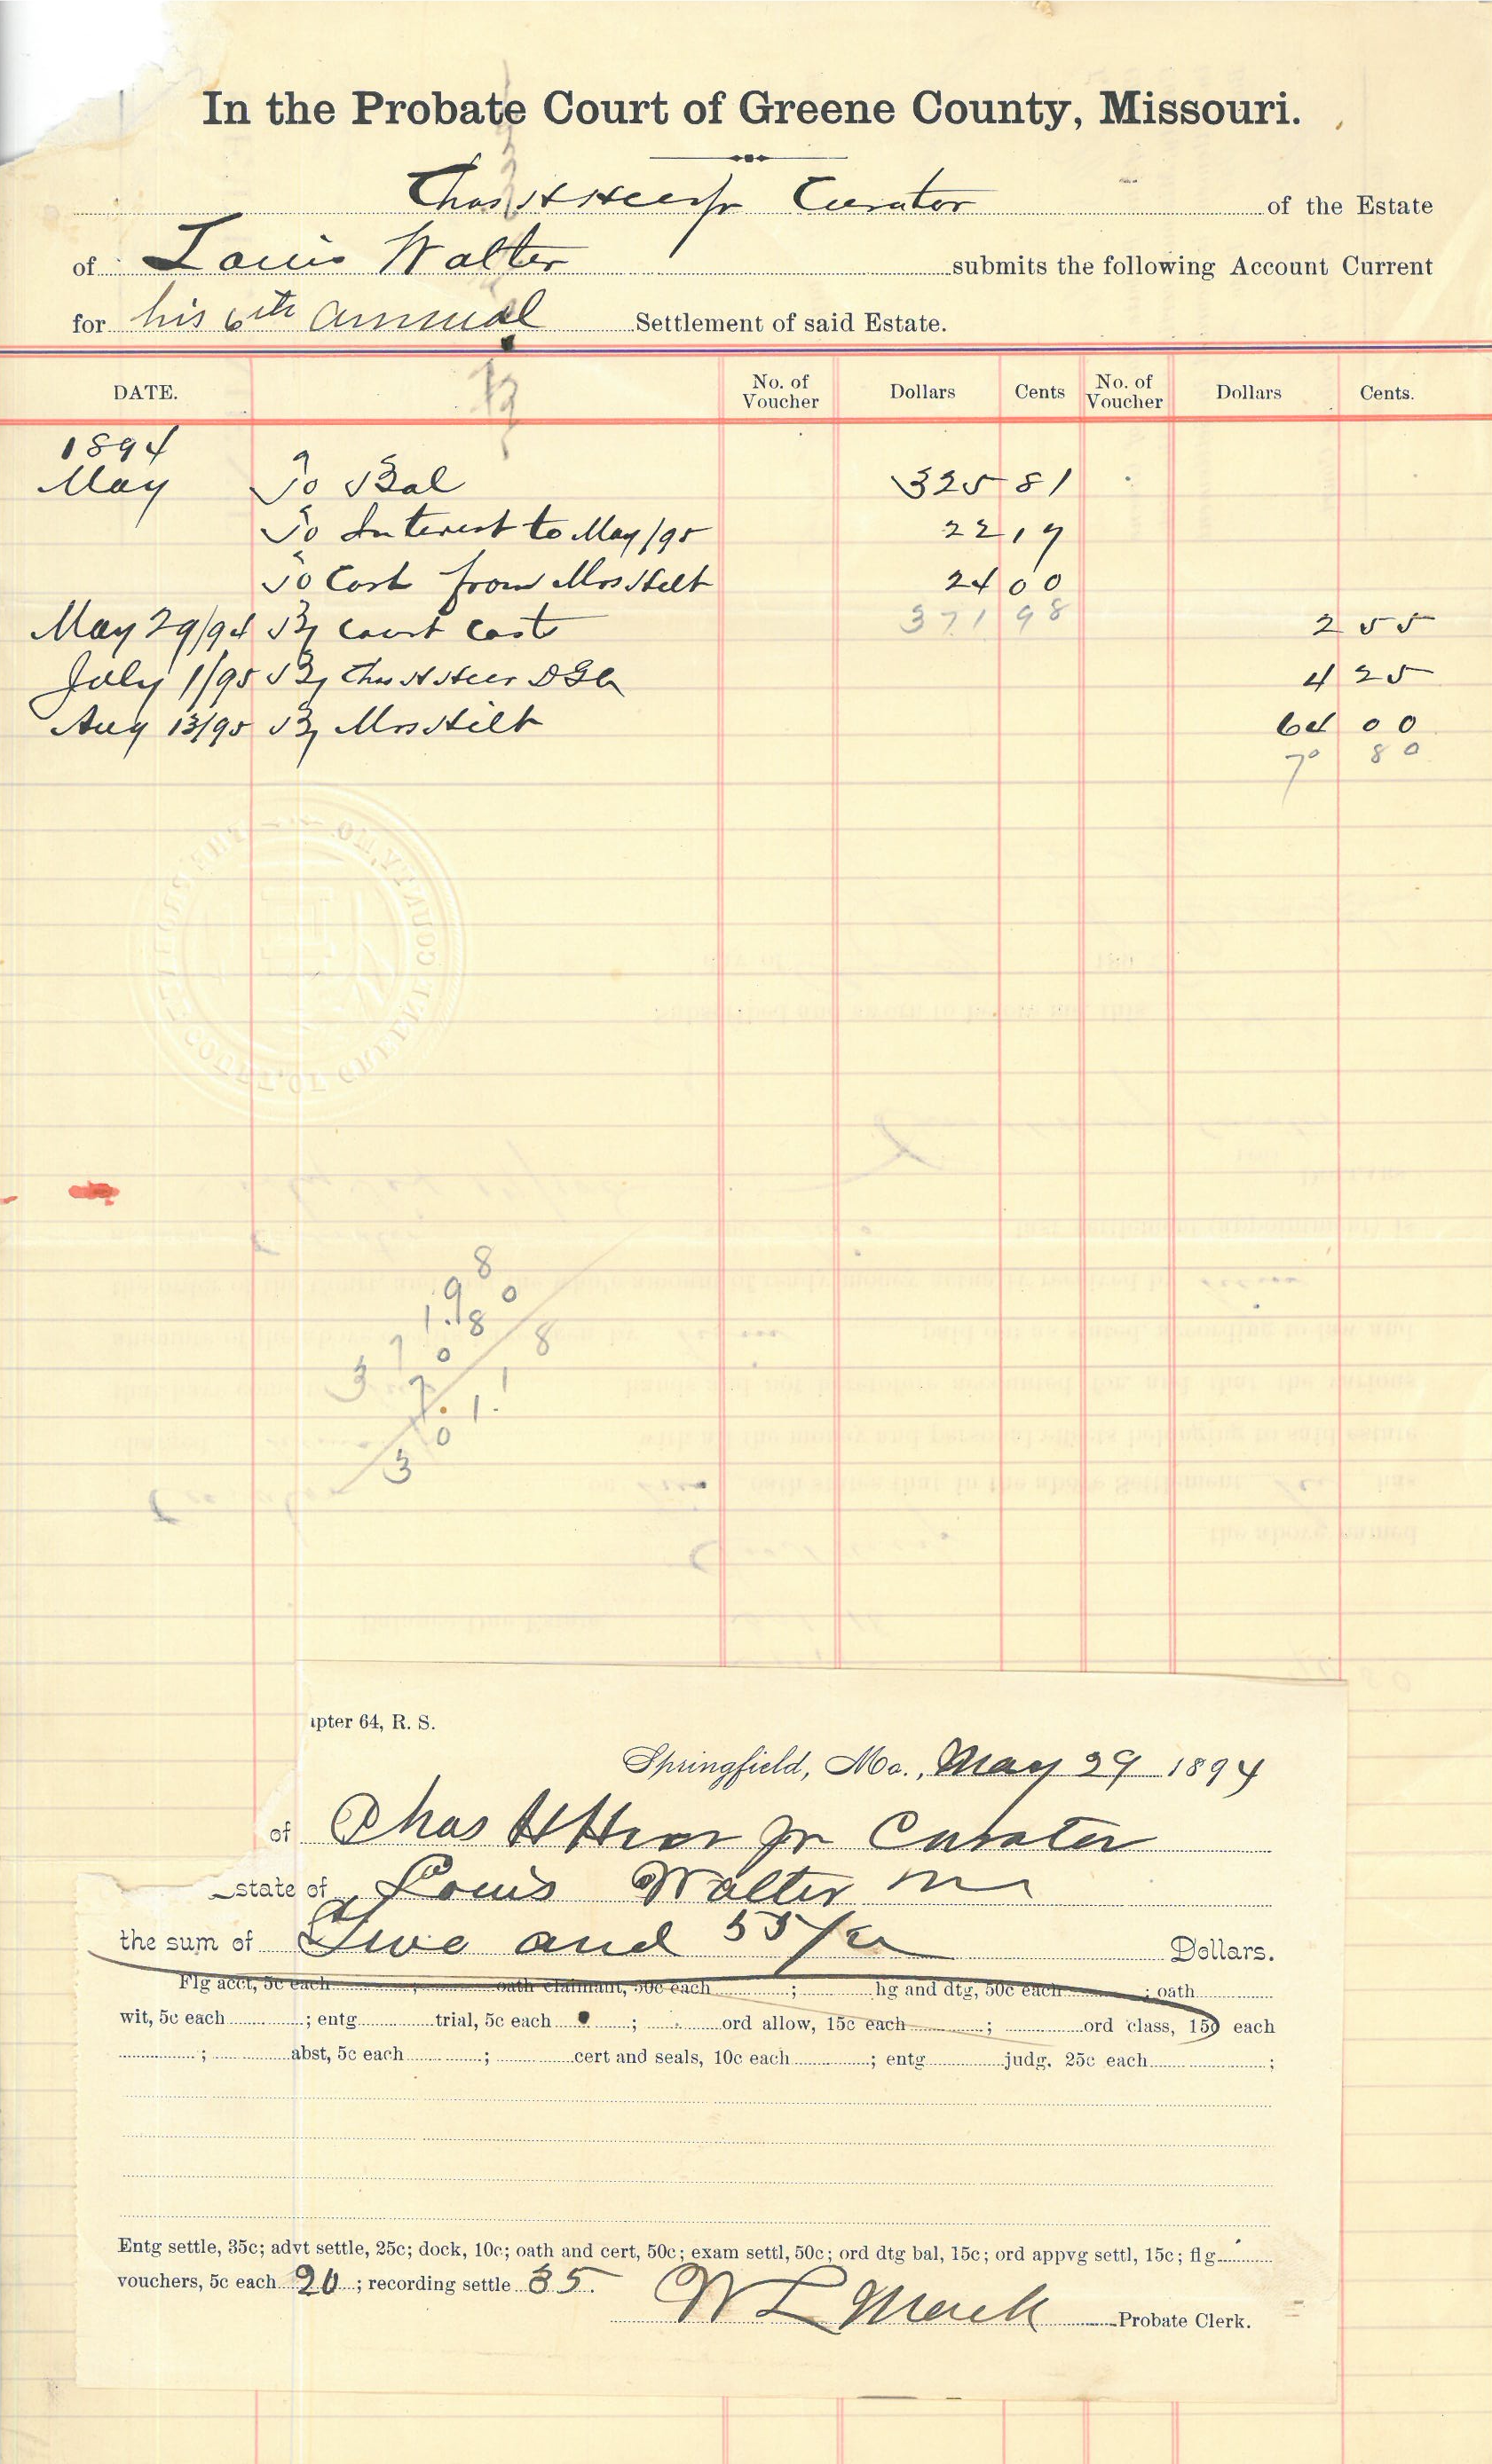 In the Probate Court of Greene County, Missouri.
Chas H Heer Jr Curator of the Estate
of Louis Walter submits the following Account Current
for his 6th annual Settlement of said Estate.
DATE. No. of Voucher Dollars Cents No. of Voucher Dollars Cents.
1894
May To Bal 325 81
To Interest to May/95 22 17
To Cash from Mrs Hilt 24 00
May 29/94 By Court Costs 371 98 2 55
July 1/95 By Chas H Heer D G Co 4 25
Aug 13/95 By Mrs Hilt 64 00
70 80
371.98
70.80
301.18
ipter 64, R. S.
Springfield, Mo., May 29 1894
of Chas H Heer Jr Curator
state of Louis Walter
the sum of Two and 55/ Dollars.
Flg acct, 5c each ; oath claimant, 50c each ; hg and dtg, 50c each ; oath
wit, 5c each ; entg trial, 5c each ; ord allow, 15c each ; ord class, 15c each
; abst, 5c each ; cert and seals, 10c each ; entg judg. 25c each ;
Entg settle, 35c; advt settle, 25c; dock, 10c; oath and cert, 50c; exam settl, 50c; ord dtg bal, 15c; ord appvg settl, 15c; flg
vouchers, 5c each 20 ; recording settle 35.
Probate Clerk.